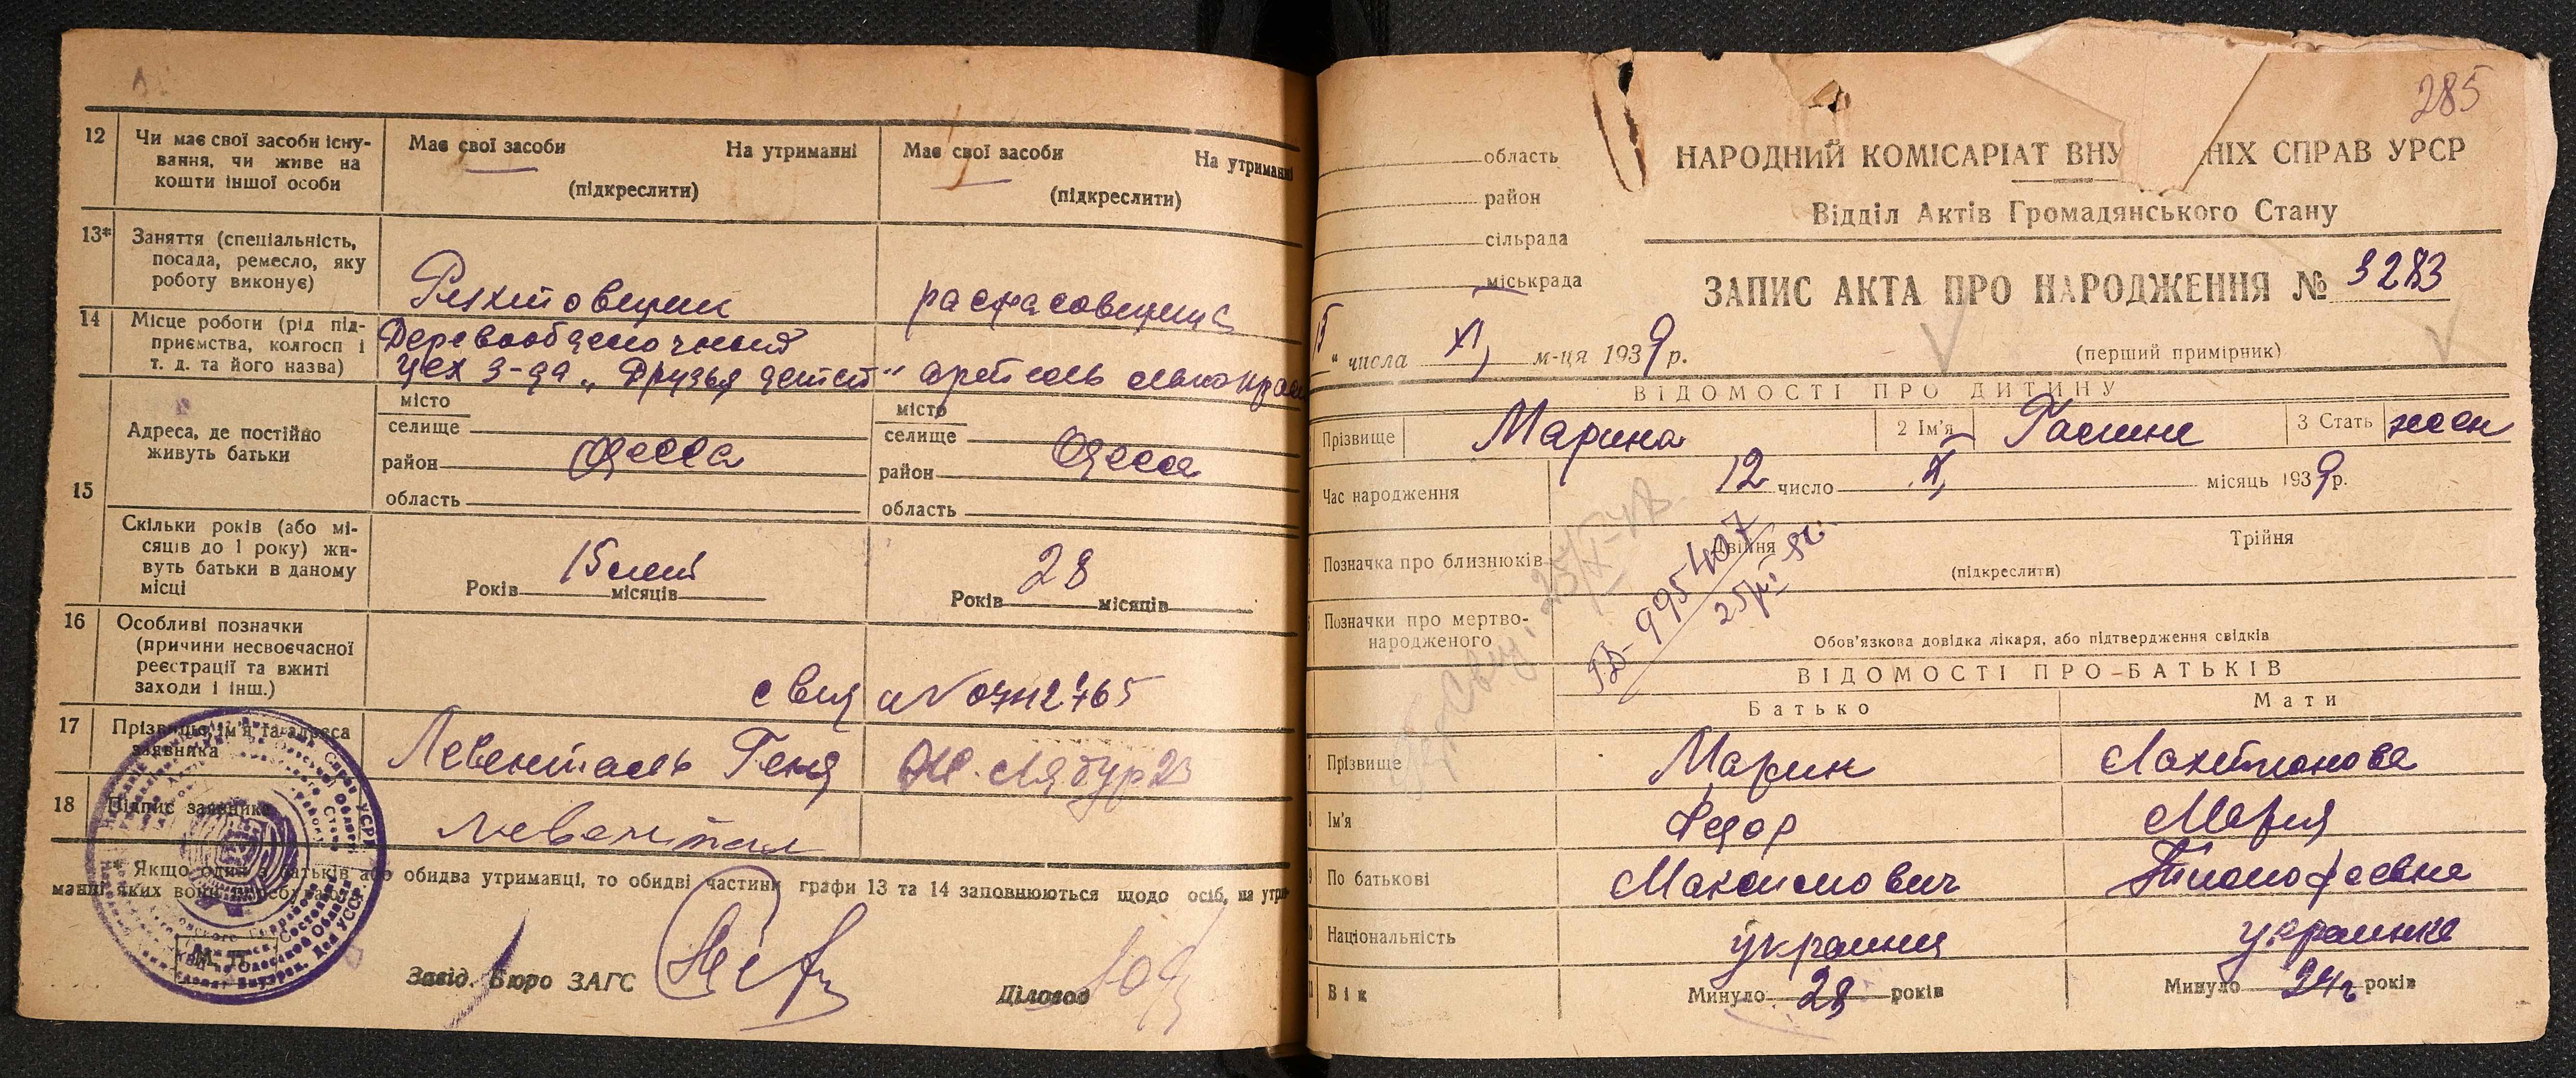 12
Чи має свої засоби існу-
вання, чи живе на
кошти іншої особи
Має свої засоби На утриманні
(підкреслити)
Має свої засоби На утриманні
(підкреслити)
13*
Заняття (спеціальність,
посада, ремесло, яку
роботу виконує)
14
Місце роботи (рід під-
приємства, колгосп і
т. д. та його назва)
Деревообделочный
цех з-да „Друзья детей"
артель
15
Адреса, де постійно
живуть батьки
місто
селище
район Одесса
область
місто
селище
район Одесса
область
Скільки років (або мі-
сяців до 1 року) жи-
вуть батьки в даному
місці
15 лет
Років місяців
28
Років місяців
16
Особливі позначки
(причини несвоєчасної
реєстрації та вжиті
заходи і інш.)
17
Прізвище, ім'я та адреса
заявника
Левенталь Геня
18
Підпис заявника
Левентал
* Якщо один з батьків або обидва утриманці, то обидві частини графи 13 та 14 заповнюються щодо осіб, на утри-
манні яких вони перебувають
М. П.
Завід. Бюро ЗАГС
Діловод
285
область
район
сільрада
міськрада
НАРОДНИЙ КОМІСАРІАТ ВНУ НІХ СПРАВ УРСР
Відділ Актів Громадянського Стану
ЗАПИС АКТА ПРО НАРОДЖЕННЯ № 3283
15 " числа XI м-ця 1939 р.
(перший примірник)
ВІДОМОСТІ ПРО ДИТИНУ
Прізвище Марина 2 Ім'я 3 Стать жен
Час народження 12 число X місяць 1939 р.
Позначка про близнюків Двійня Трійня
(підкреслити)
995407
Позначки про мертво-
народженого
Обов'язкова довідка лікаря, або підтвердження свідків
ВІДОМОСТІ ПРО БАТЬКІВ
Батько Мати
Прізвище Марин Лохтионова
Ім'я Федор Мария
По батькові Максимович Тимофеевна
Національність украинец украинка
Вік Минуло 28 років Минуло 24 років